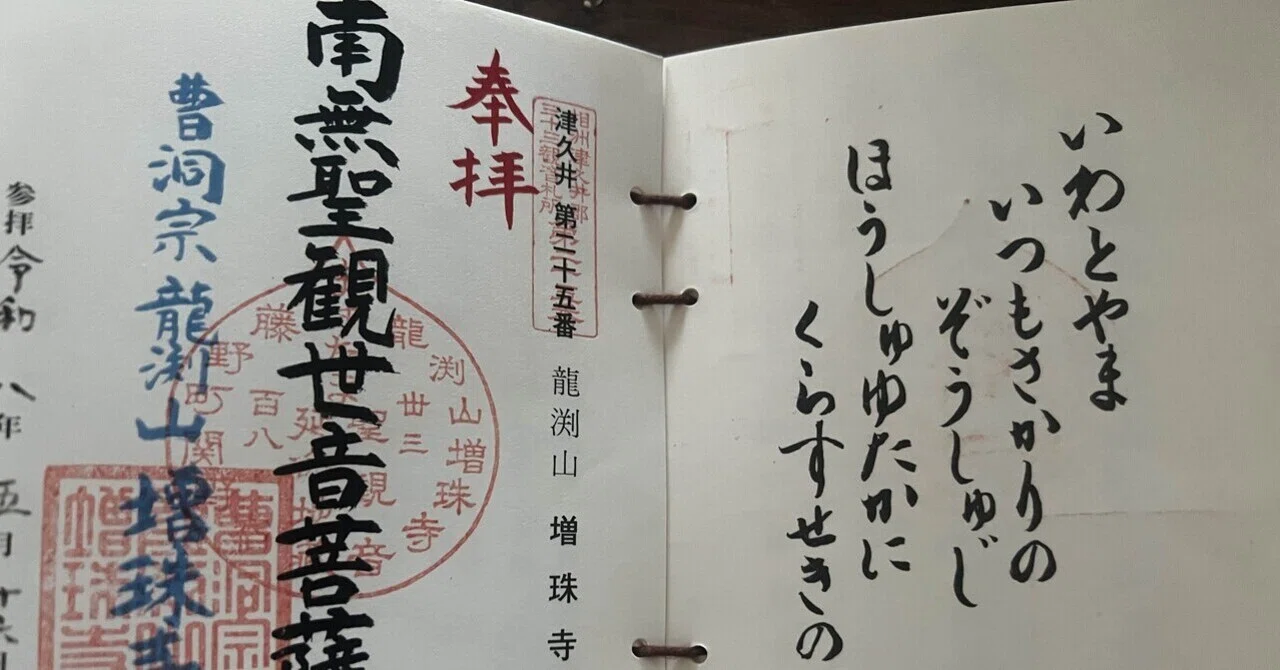 いわとやま
いつもさかりの
ぞうしゅじ
ほうしゅゆたかに
くらすせきの
津久井 第二十五番 龍渕山 増珠寺
相州津久井郡
三十三観音札所
奉拝
南無聖観世音菩薩
龍渕山増珠寺
丗三
百八
藤野町関
曹洞宗 龍渕山 増珠寺
参拝 令和 八年 五月 十六日